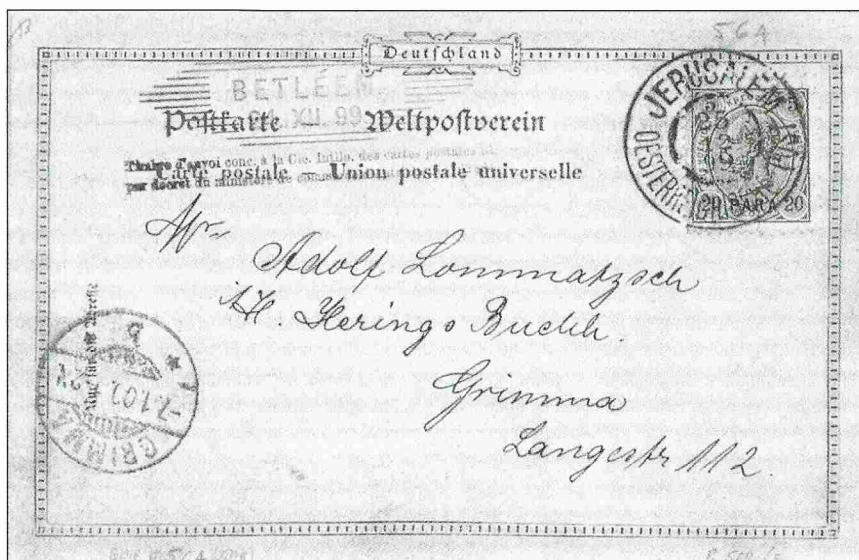 564
Deutschland
BETLEEM
XII 99
Postkarte Weltpostverein
Timbre d'envoi conc. à la Cie. Intlle. des cartes postales
par décret du ministère de
Carte postale — Union postale universelle
JERUSALEM
OESTERR
5 5
20 PARA 20
Mr
Adolf Lommatzsch
H. Herings Buchh.
Grimma
Langestr 112.
Nur für die Adresse
GRIMMA
7.1.02